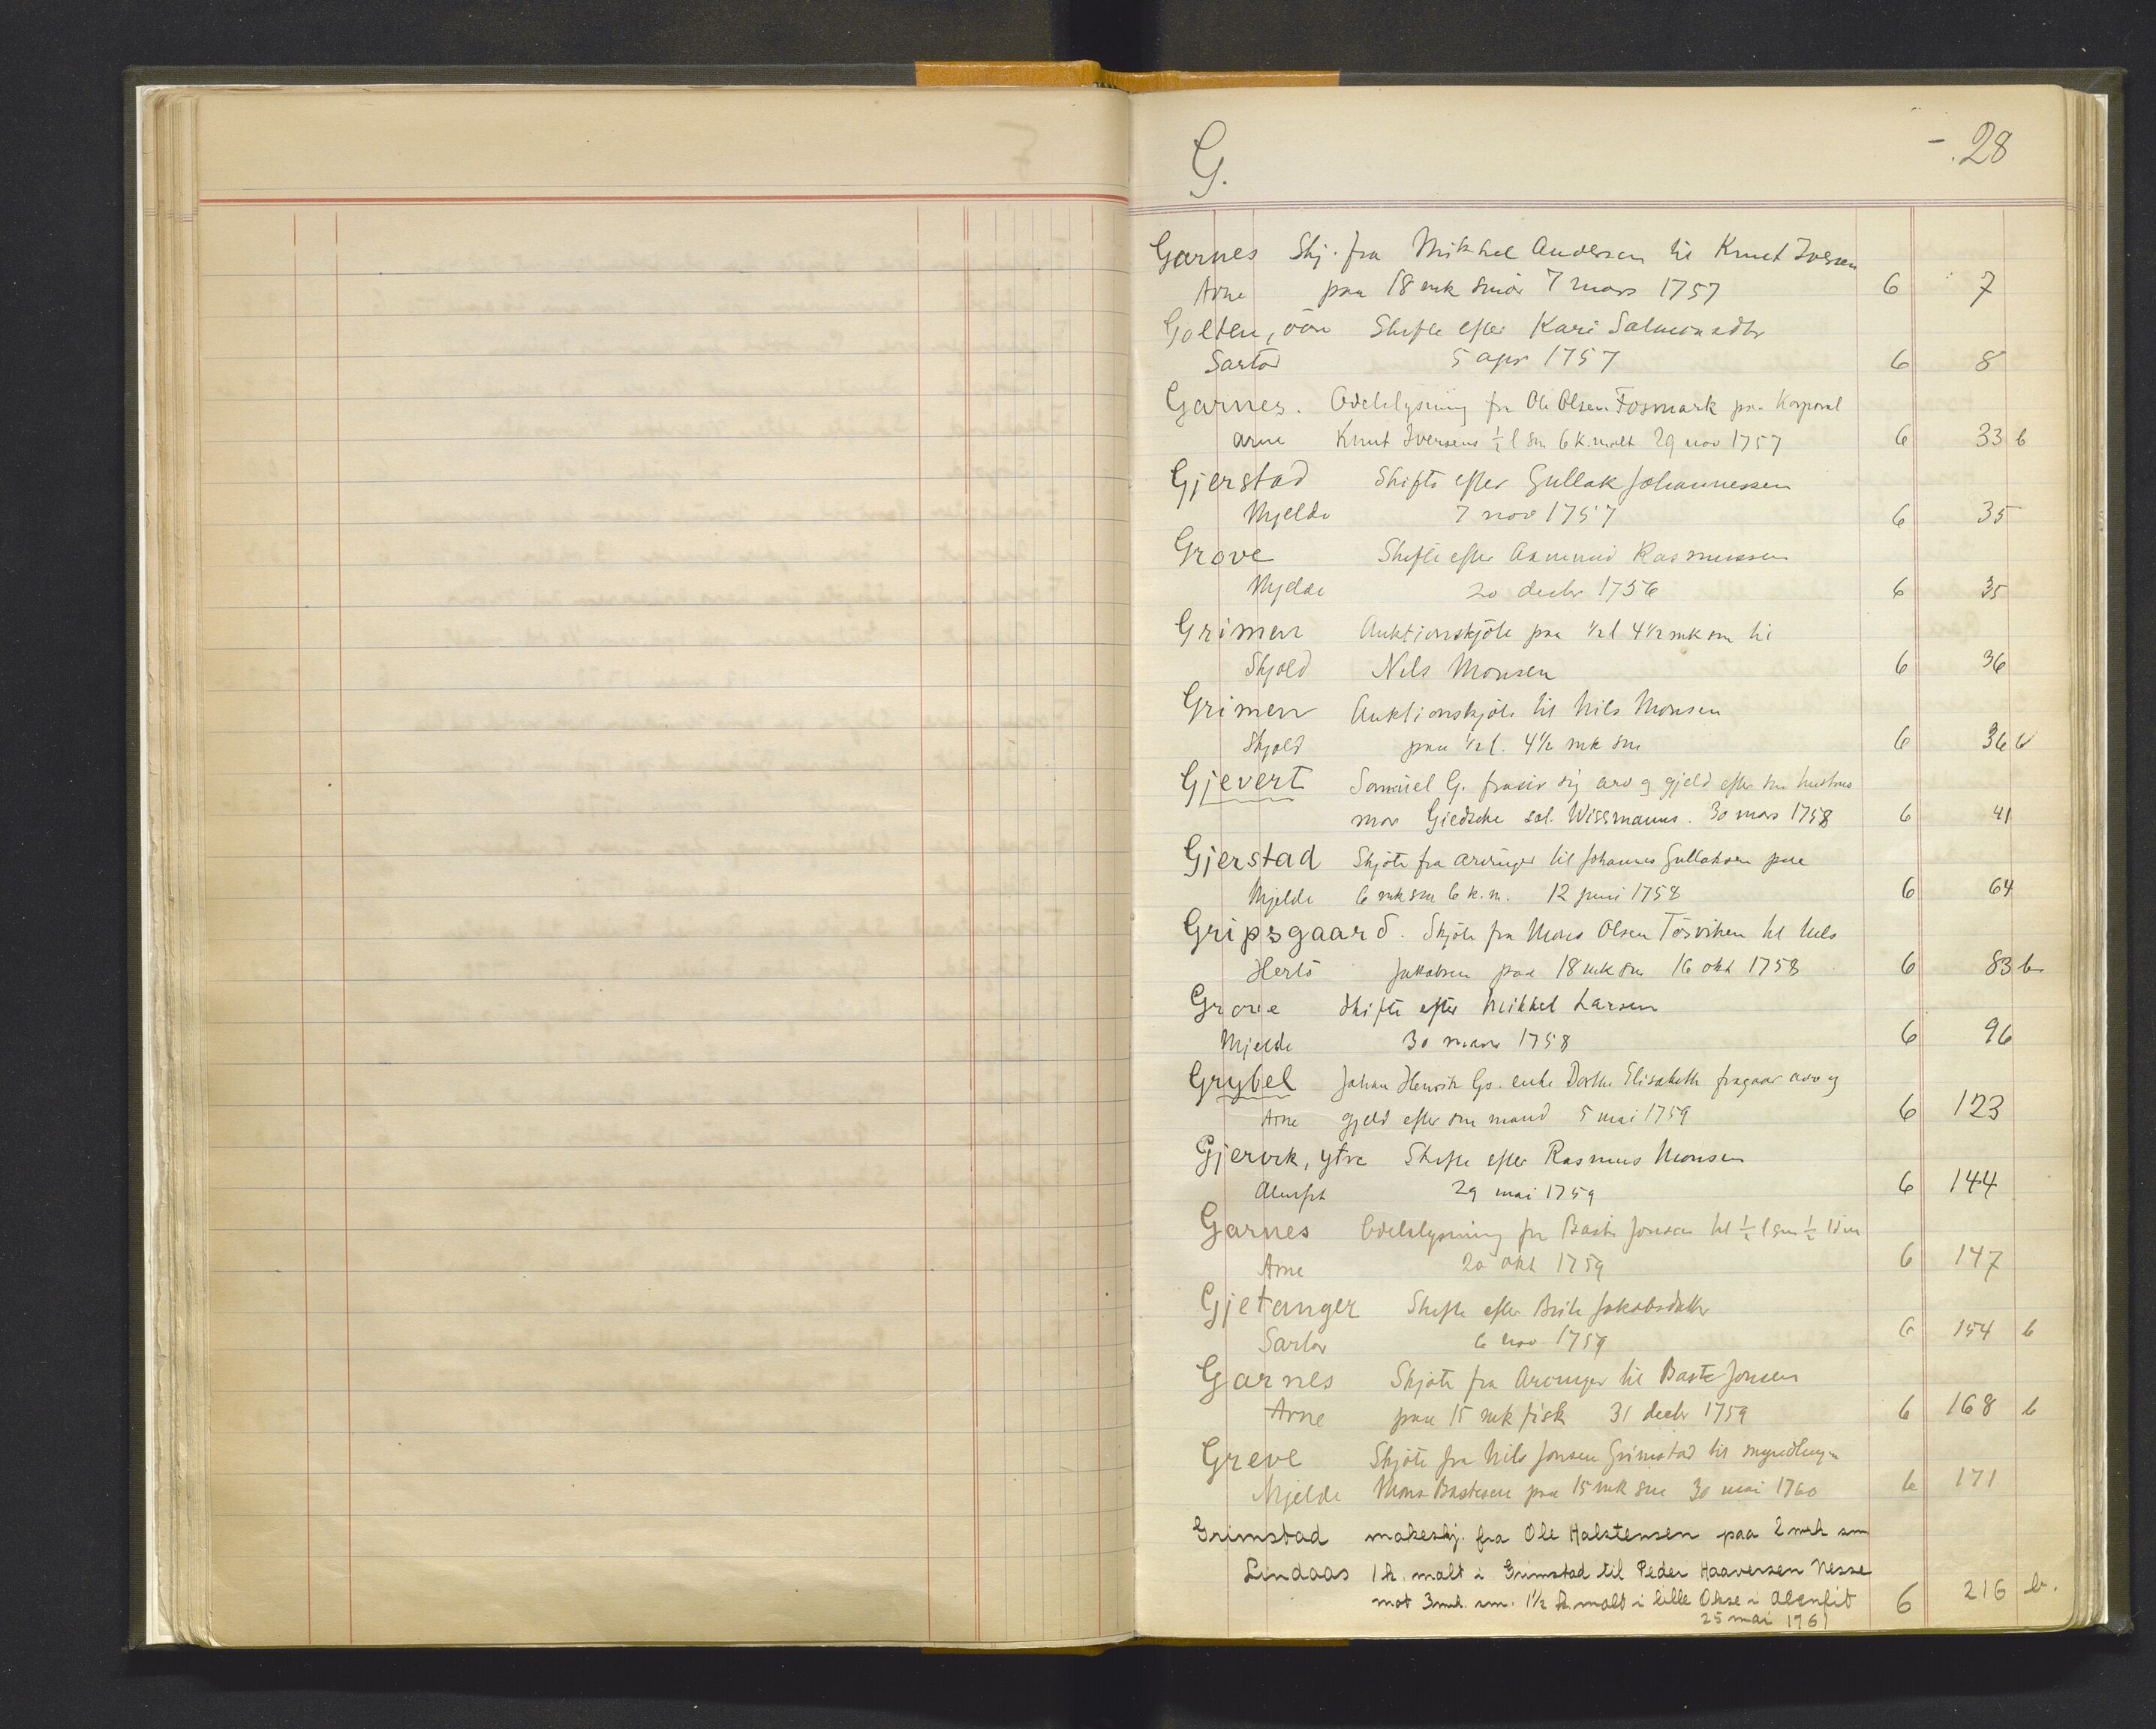 G. 28
Garnes Skj. fra Mikkel Andersen til Knut Iversen
Arne paa 18 mk smör 7 mars 1757 6 7
Golten, övre Skifte efter Kari Salmonsdtr
Sartor 5 apr 1757 6 8
Garnes. Odelslysning fra Ole Olsen Fosmark paa Korporal
Arne Knut Iversens ½ l sm 6 k. malt 29 nov 1757 6 33 b
Gjerstad Skifte efter Gullak Johannessen
Mjelde 7 nov 1757 6 35
Grove Skifte efter Aamund Rasmussen
Mjelde 20 decbr 1756 6 35
Grimen Auktionskjöte paa ½ l 4½ mk sm til
Skjold Nils Monsen 6 36
Grimen Auktionskjöte til Nils Monsen
Skjold paa ½ l. 4½ mk sm 6 36 b
Gjevert Samuel G. frasier sig arv og gjeld efter sin hustrus
mor Giedsche sal. Wissmanns. 30 mars 1758 6 41
Gjerstad Skjöte fra arvinger til Johannes Gullaksen paa
Mjelde 6 mk sm 6 k. m. 12 juni 1758 6 64
Gripsgaard. Skjöte fra Mons Olsen Tösviken til Nils
Herlö Jakobsen paa 18 mk sm 16 okt 1758 6 83 b
Grove Skifte efter Mikkel Larsen
Mjelde 30 mars 1758 6 96
Grybel Johan Henrik Gs. enke Dorthe Elisabeth fragaar arv og
Arne gjeld efter sin mand 5 mai 1759 6 123
Gjervik, ytre Skifte efter Rasmus Monsen
Alenfit 29 mai 1759 6 144
Garnes Odelslysning fra Baste Jonsen til ½ l sm ½
Arne 20 okt 1759 6 147
Gjetanger Skifte efter Brite Jakobsdatter
Sartor 6 nov 1759 6 154 b
Garnes Skjöte fra Arvinger til Baste Jonsen
Arne paa 15 mk fisk 31 decbr 1759 6 168 b
Greve Skjöte fra Nils Jonsen Grimstad til myndling
Mjelde Mons Bastesen paa 15 mk sm 30 mai 1760 6 171
Grimstad makeskj. fra Ole Halstensen paa 2 mrk sm
Lindaas 1 k. malt i Grimstad til Peder Haaversen Nesse
mot 3 mrk. sm. 1½ k malt i lille Okse i Alenfit 6 216 b.
25 mai 1761